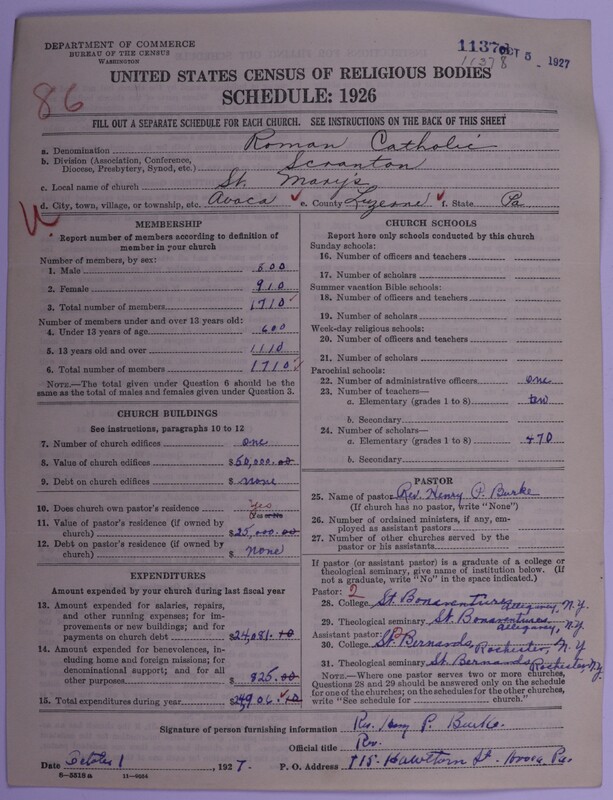 DEPARTMENT OF COMMERCE
BUREAU OF THE CENSUS
WASHINGTON
OCT 5 1927
11378
86
UNITED STATES CENSUS OF RELIGIOUS BODIES
SCHEDULE: 1926
FILL OUT A SEPARATE SCHEDULE FOR EACH CHURCH. SEE INSTRUCTIONS ON THE BACK OF THIS SHEET
a. Denomination Roman Catholic
b. Division (Association, Conference, Diocese, Presbytery, Synod, etc.) Scranton
c. Local name of church St. Mary's
d. City, town, village, or township, etc. Avoca e. County Luzerne f. State Pa.
MEMBERSHIP
Report number of members according to definition of
member in your church
Number of members, by sex:
1. Male 800
2. Female 910
3. Total number of members 1710
Number of members under and over 13 years old:
4. Under 13 years of age 600
5. 13 years old and over 1110
6. Total number of members 1710
NOTE.—The total given under Question 6 should be the
same as the total of males and females given under Question 3.
CHURCH BUILDINGS
See instructions, paragraphs 10 to 12
7. Number of church edifices one
8. Value of church edifices $50,000.00
9. Debt on church edifices $ none
10. Does church own pastor's residence Yes
Yes or No
11. Value of pastor's residence (if owned by
church) $25,000.00
12. Debt on pastor's residence (if owned by
church) $ none
EXPENDITURES
Amount expended by your church during last fiscal year
13. Amount expended for salaries, repairs,
and other running expenses; for im-
provements or new buildings; and for
payments on church debt $24,081.10
14. Amount expended for benevolences, in-
cluding home and foreign missions; for
denominational support; and for all
other purposes $ 825.00
15. Total expenditures during year $24906.10
CHURCH SCHOOLS
Report here only schools conducted by this church
Sunday schools:
16. Number of officers and teachers
17. Number of scholars
Summer vacation Bible schools:
18. Number of officers and teachers
19. Number of scholars
Week-day religious schools:
20. Number of officers and teachers
21. Number of scholars
Parochial schools:
22. Number of administrative officers one
23. Number of teachers—
a. Elementary (grades 1 to 8) ten
b. Secondary
24. Number of scholars—
a. Elementary (grades 1 to 8) 470
b. Secondary
PASTOR
25. Name of pastor Rev. Henry P. Burke
(If church has no pastor, write "None")
26. Number of ordained ministers, if any, em-
ployed as assistant pastors
27. Number of other churches served by the
pastor or his assistants
If pastor (or assistant pastor) is a graduate of a college or
theological seminary, give name of institution below. (If
not a graduate, write "No" in the space indicated.)
Pastor: 2
28. College St. Bonaventures Allegany, N.Y.
29. Theological seminary St. Bonaventures Allegany, N.Y.
Assistant pastor:
30. College St. Bernards, Rochester, N.Y
31. Theological seminary St. Bernards, Rochester N.Y.
NOTE.—Where one pastor serves two or more churches,
Questions 28 and 29 should be answered only on the schedule
for one of the churches; on the schedules for the other churches,
write "See schedule for church."
Signature of person furnishing information Rev. Henry P. Burke.
Official title Rev.
Date October 1, 1927. P. O. Address 715 Hawthorn St. Avoca, Pa.
6—5518 a 11—9054